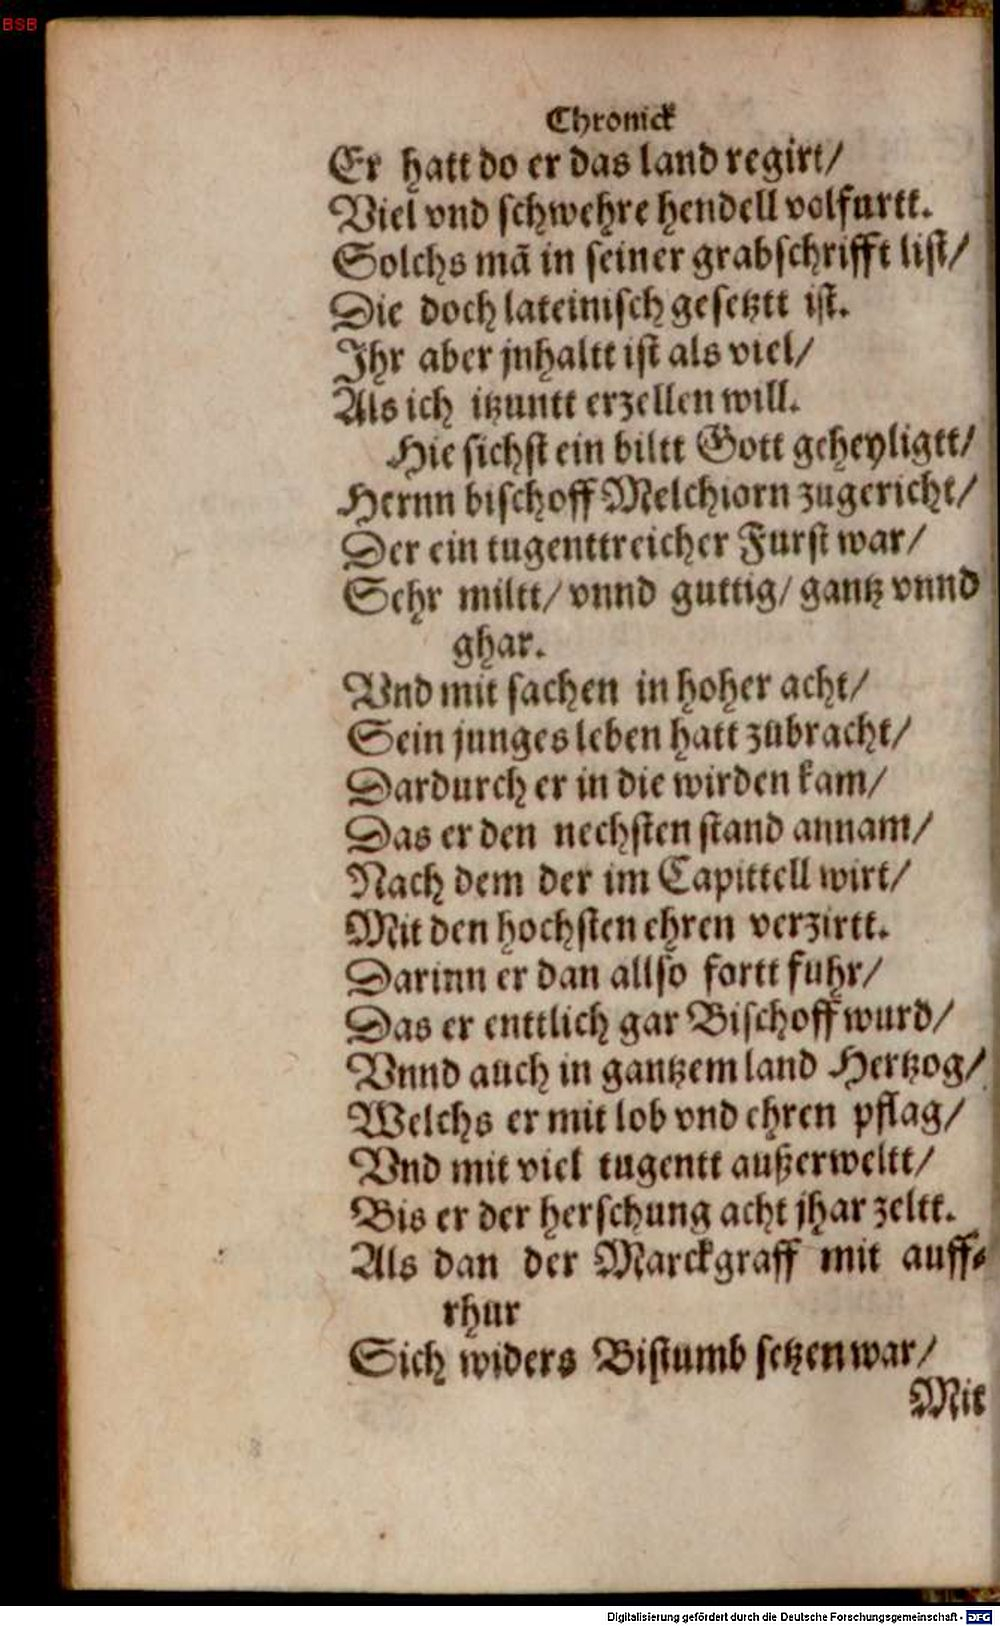 BSB
Chronick
Er hatt do er das land regirt/
Viel vnd schwehre hendell volfurtt.
Solchs mã in seiner grabschrifft list/
Die doch lateinisch gesetztt ist.
Ihr aber jnhaltt ist als viel/
Als ich itzuntt erzellen will.
Hie sichst ein biltt Gott geheyligtt/
Hernn bischoff Melchiorn zugericht/
Der ein tugenttreicher Furst war/
Sehr miltt/ vnnd guttig/ gantz vnnd
ghar.
Vnd mit sachen in hoher acht/
Sein junges leben hatt zubracht/
Dardurch er in die wirden kam/
Das er den nechsten stand annam/
Nach dem der im Capittell wirt/
Mit den hochsten ehren verzirtt.
Darinn er dan allso fortt fuhr/
Das er enttlich gar Bischoff wurd/
Vnnd auch in gantzem land Hertzog/
Welchs er mit lob vnd ehren pflag/
Vnd mit viel tugentt außerweltt/
Bis er der herschung acht jhar zeltt.
Als dan der Marckgraff mit auff-
rhur
Sich widers Bistumb setzen war/
Mit
Digitalisierung gefördert durch die Deutsche Forschungsgemeinschaft - DFG